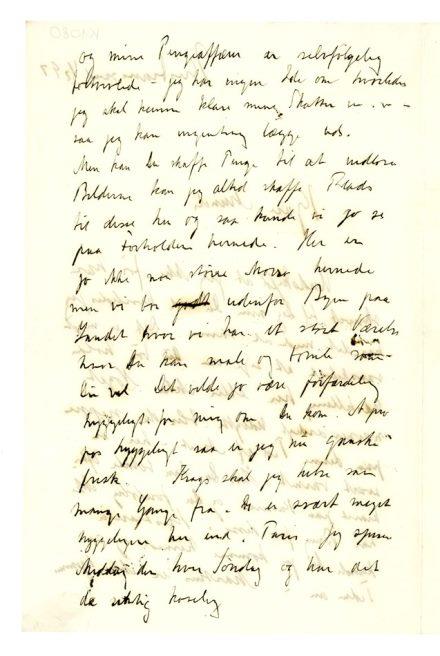 og mine Pengeaffærer er selvfølgelig
forkvaklede – jeg har ingen Ide om hvorledes
jeg skal kunne klare mine Skatter
saa jeg kan ingenting lægge ud.
Men kan Du skaffe Penge til at
Billederne kan jeg altid skaffe Plads
til disse her og saa kunde vi jo se
paa Forholdene hernede. Her er
jo ikke noe større Morro hernede
men vi bor udenfor Byen paa
Landet hvor vi har et stort Værelse
hvor Du kan male og
Det vilde jo være forfærdelig
hyggeligt for mig om Du kom. A pro
pos hyggeligt saa er jeg nu ganske
frisk. Krags skal jeg hilse saa
mange Gange fra. De er svært meget
hyggeligere her end i Paris. Jeg spiser
Middag der hver Søndag og har det
da rigtig koselig